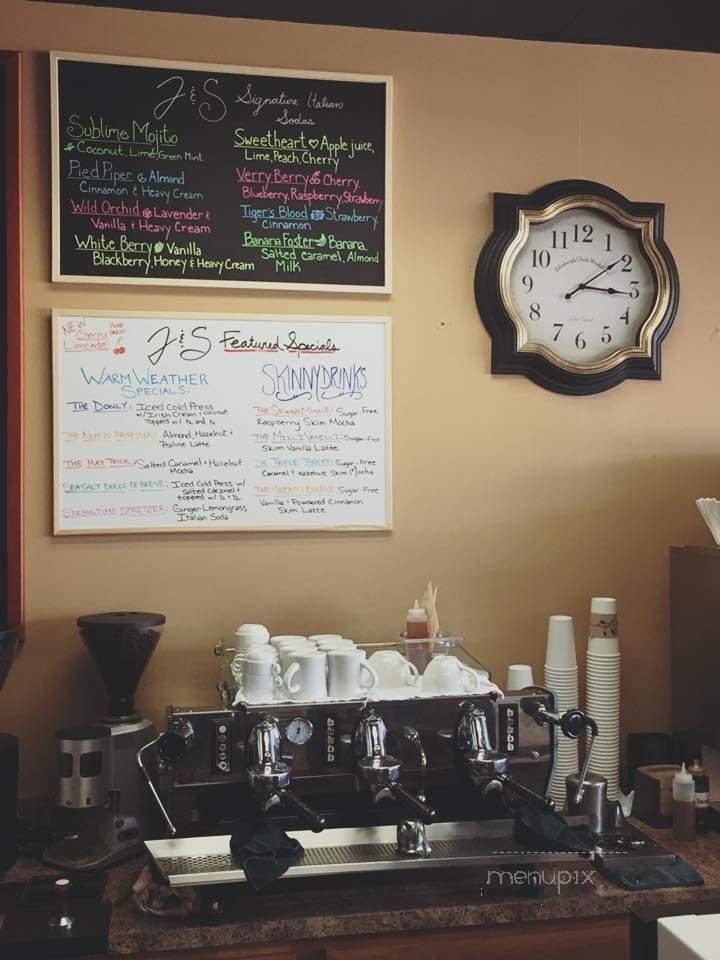 J & S Signature Italian
Sodas
Sublime Mojito
Coconut, Lime, Green Mint
Pied Piper Almond
Cinnamon & Heavy Cream
Wild Orchid Lavender &
Vanilla & Heavy Cream
White Berry Vanilla
Blackberry, Honey & Heavy Cream
Sweetheart Apple juice,
Lime, Peach, Cherry
Verry Berry Cherry,
Blueberry, Raspberry, Strawberry
Tiger's Blood Strawberry,
Cinnamon
Banana Foster Banana,
Salted caramel, Almond
Milk
NEW
Cherry
Limeade
J & S Featured Specials
WARM WEATHER
SPECIALS:
THE DONLY: Iced Cold Press
w/ Irish Cream + coconut
topped w/ ½ and ½
Almond, Hazelnut +
Praline Latte
THE HAT TRICK: Salted Caramel + Hazelnut
Mocha
SEASALT DULCE DE BREVE: Iced Cold Press w/
Salted Caramel +
topped w/ ½ + ½
SPRINGTIME SPRITZER: Ginger Lemongrass
Italian Soda
SKINNY DRINKS
THE SKINNY MINNIE: Sugar-Free
Raspberry Skim Mocha
THE MILLI VANILLI: Sugar-Free
Skim Vanilla Latte
THE TRIPLE THREAT: Sugar-Free
Caramel + Hazelnut Skim Mocha
THE SKINNY Sugar-Free
Vanilla + Powdered Cinnamon
Skim Latte
12
11 1
10 2
9 3
8 4
7 6 5
menupix